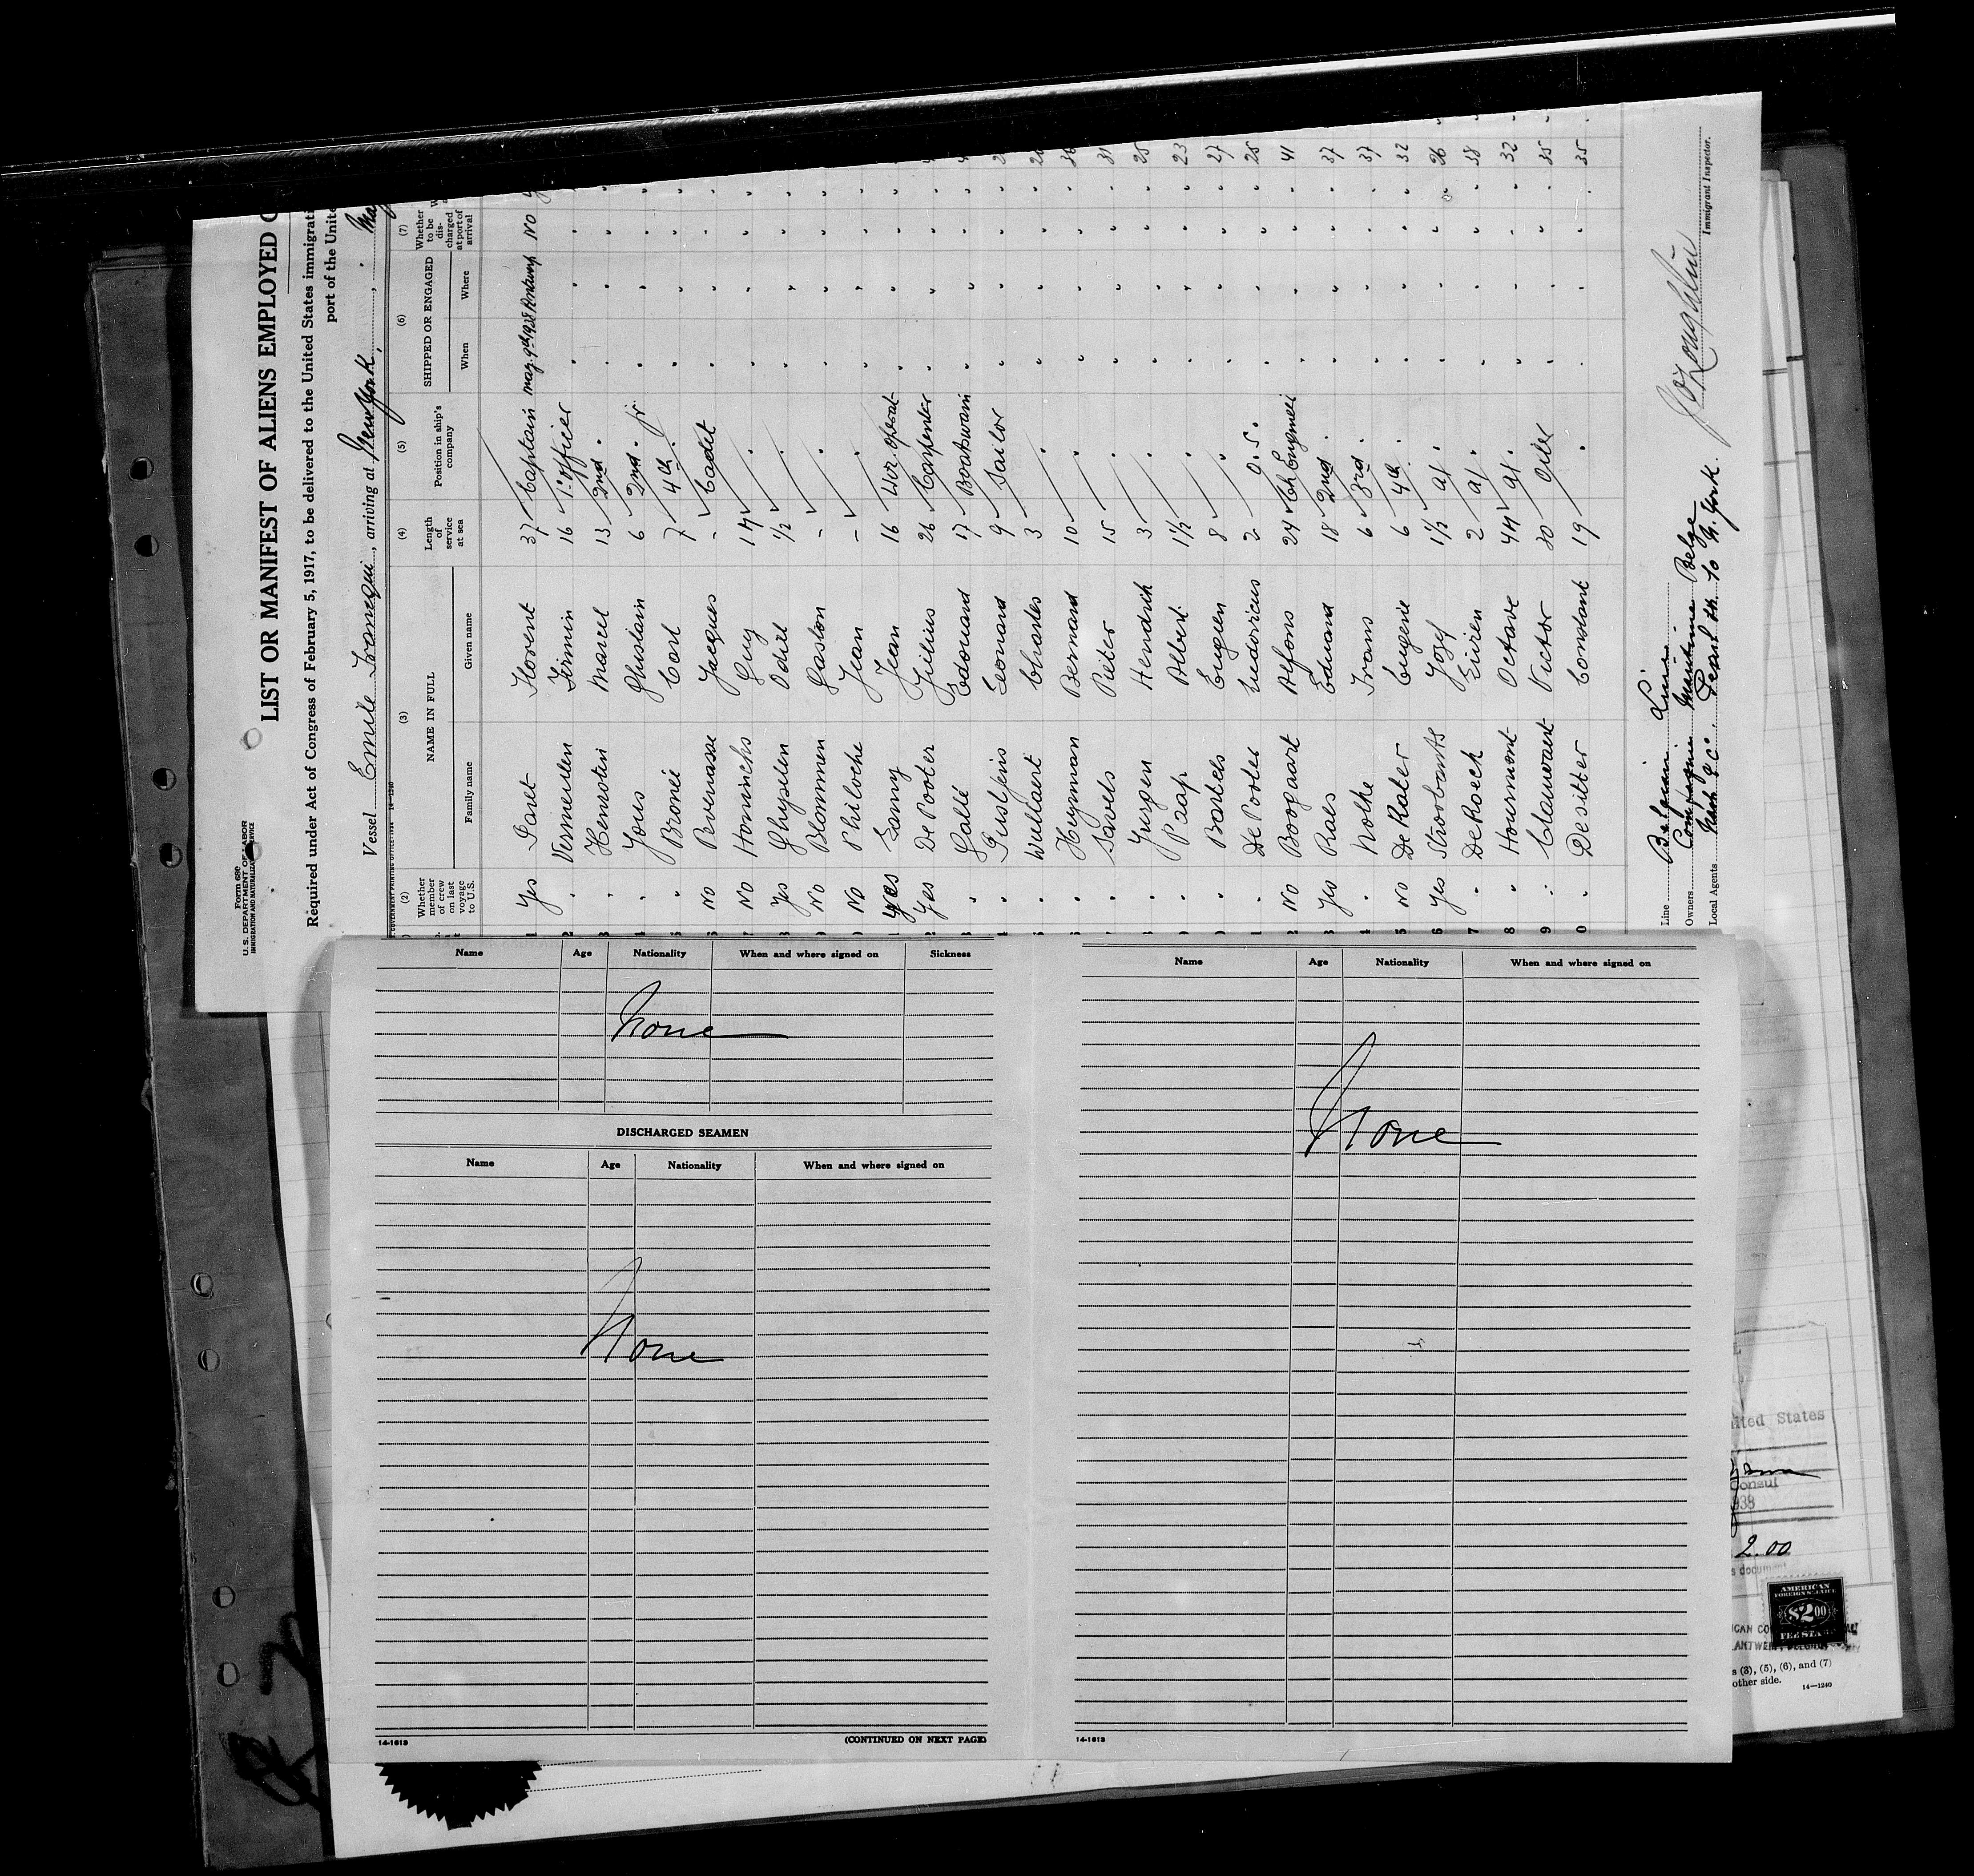 Form 680
U.S. DEPARTMENT OF LABOR
IMMIGRATION AND NATURALIZATION SERVICE
LIST OR MANIFEST OF ALIENS EMPLOYED
Required under Act of Congress of February 5, 1917, to be delivered to the United States immigrati
port of the Unite
Vessel Emile Francqui, arriving at New York,
(2) (3) (4) (5) (6) (7)
Whether member of crew on last voyage to U.S. NAME IN FULL Length of service at sea Position in ship's company SHIPPED OR ENGAGED Whether to be discharged at port of arrival
Family name Given name When Where
1 Yes Florent 37 Captain May 9th 1938 Antwerp No
2 " Vermeulen Firmin 16 1° officer " " "
3 " Henrotin Marcel 13 2nd " " " "
4 " Ghislain 6 2nd " jr " " "
5 " Carl 7 4th " " " "
6 No Jacques - Cadet " " "
7 No Guy " " " "
8 Yes Ghyselen Odiel ½ " " " "
9 No Blommen Gaston - " " " "
0 No Philoche Jean - " " " "
1 Yes Jean 16 Wir. operat. " " "
2 Yes De Pooter Julius 26 Carpenter " " "
3 " Edouard 17 Boatswain " " "
4 " Leonard 9 Sailor " " "
5 " Wullaert Charles 3 " " " "
6 " Heynman Bernard 10 " " " " 36
7 " Savels Pieter 15 " " " " 31
8 " Jurgen Hendrik 3 " " " " 28
9 " Paap Albert 1½ " " " " 23
0 " Bartels Eugeen 8 " " " " 27
1 " De Pooter Ludovicus 2 O.S. " " " 28
2 No Boogaart Alfons 24 Ch. Engineer " " " 41
3 Yes Raes Eduard 18 2nd " " " " 37
4 " Nolke Frans 6 3rd " " " " 37
5 No De Kater Eugene 6 4th " " " " 32
6 Yes Stroobants Jozef 1½ a/ " " " " 26
7 " De Roeck 2 a/ " " " " 38
8 " Hourmont Octave 4 a/ " " " " 32
9 " Clauwaert Victor 20 Oiler " " " 35
0 " Desitter Constant 19 " " " " 35
Line Belgian Line
Owners Compagnie Maritime Belge
Local Agents Pearl str. 10 N. York.
Immigrant Inspector.
Name Age Nationality When and where signed on Sickness
None
DISCHARGED SEAMEN
Name Age Nationality When and where signed on
None
14-1613 (CONTINUED ON NEXT PAGE)
Name Age Nationality When and where signed on
None
14-1613
ited States
onsul
938
2.00
s docum
AMERICAN
FOREIGN SERVICE
$2.00
FEE STAMP
ICAN CO
ANTWERP, BELGIUM
s (3), (5), (6), and (7)
other side.
14-1240